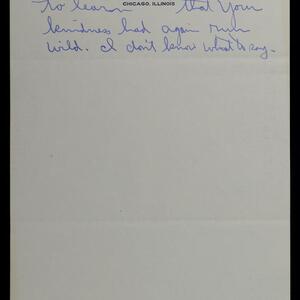 CHICAGO, ILLINOIS
to learn that your
kindness had again run
wild. I don't know what to say.